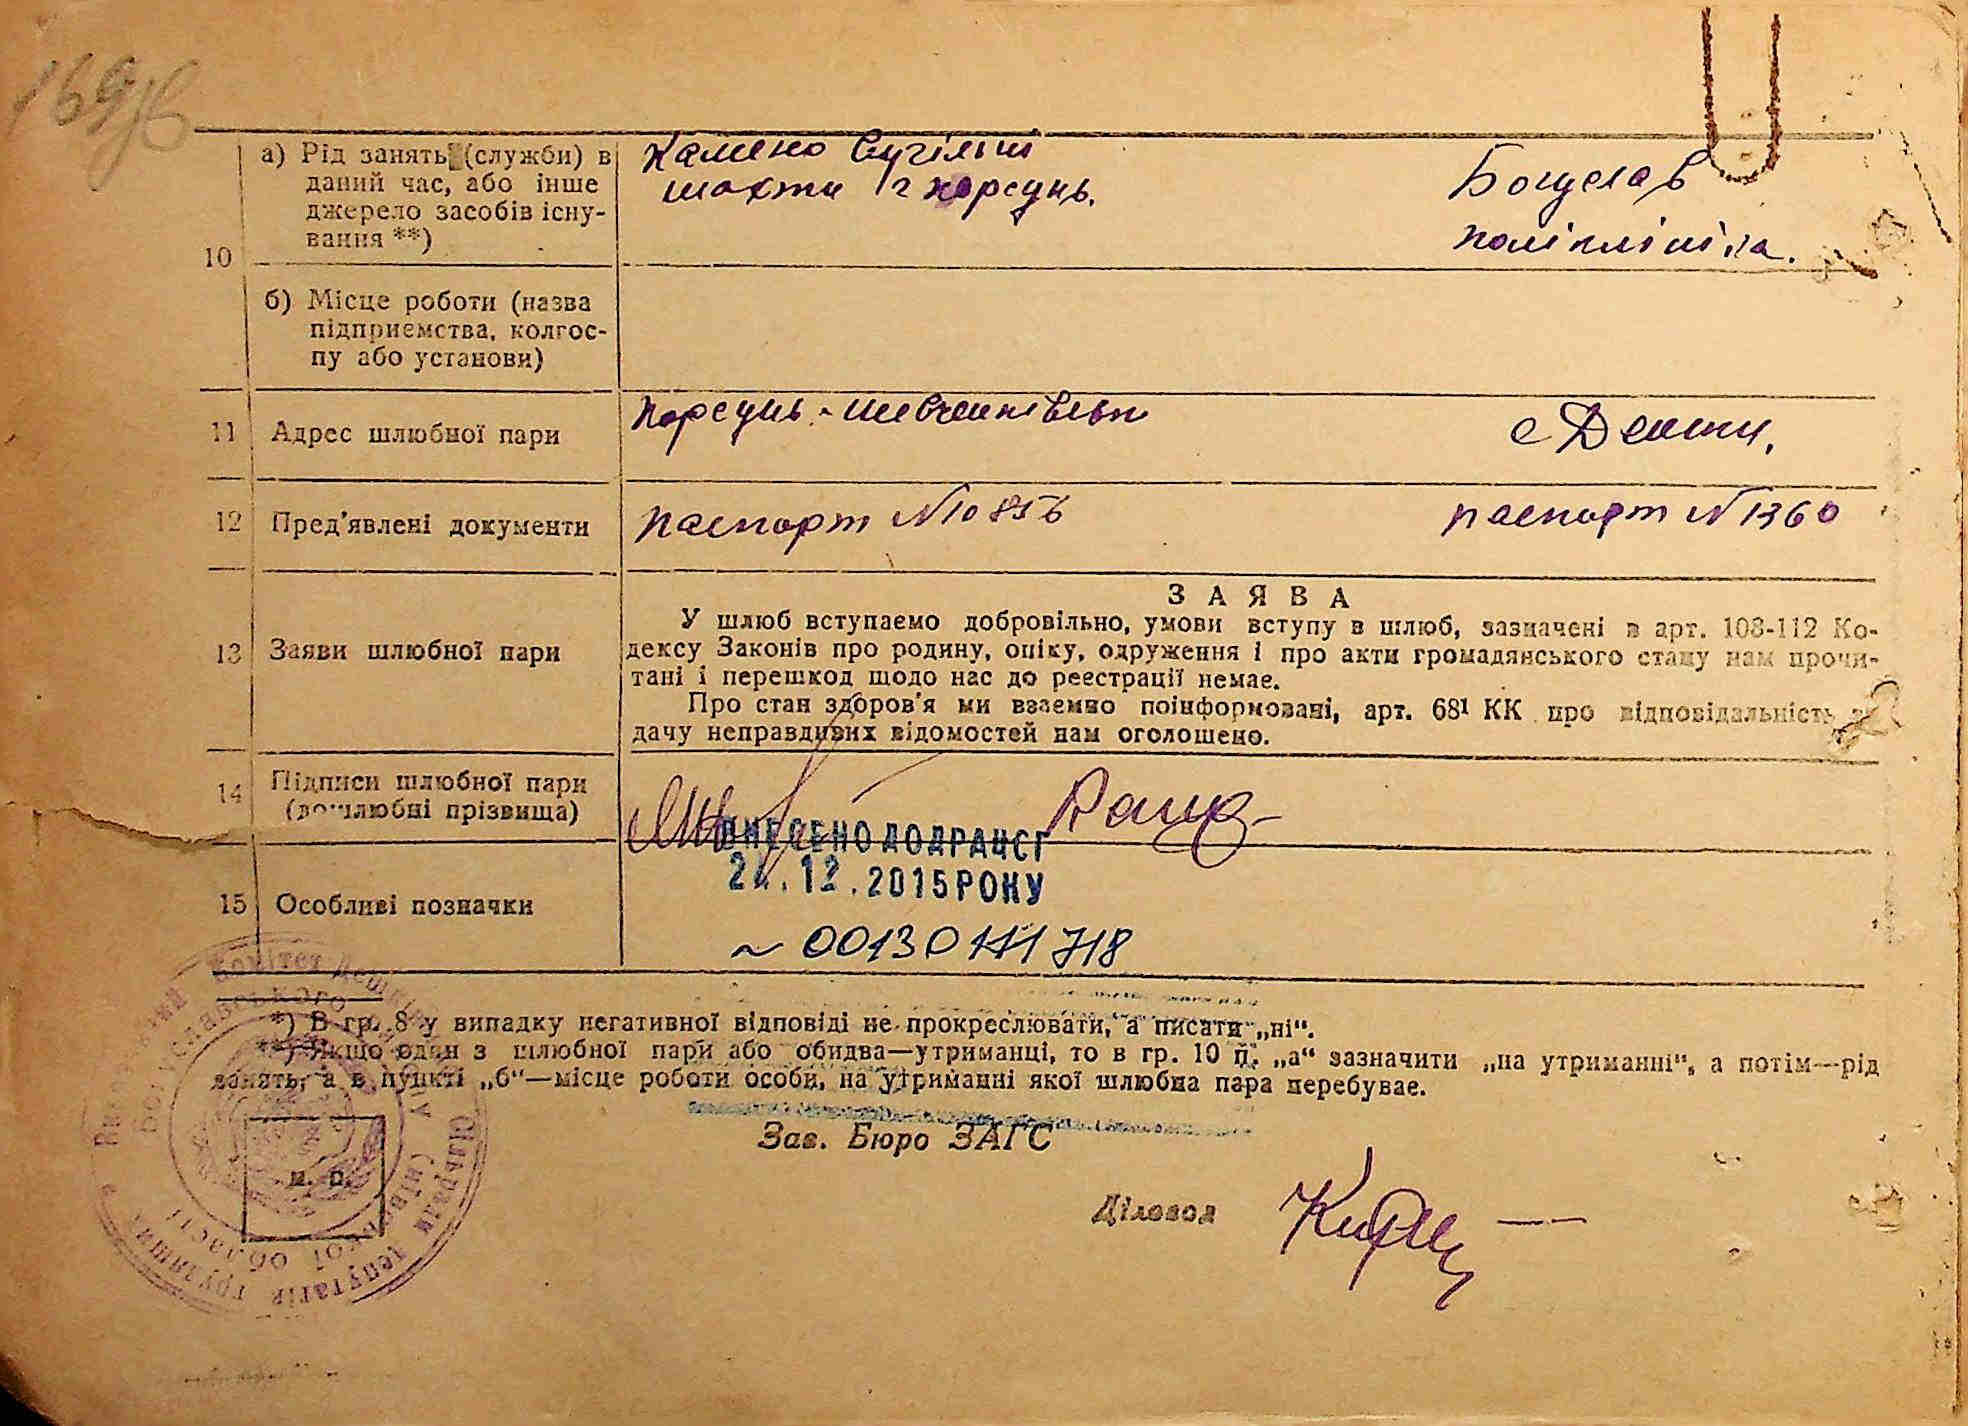 169зв
10
а) Рід занять (служби) в
даний час, або інше
джерело засобів існу-
вання **)
Камено Вугільні
шахти г Корсунь.
Богуслав
поліклініка.
б) Місце роботи (назва
підприємства, колгос-
пу або установи)
11 Адрес шлюбної пари
Корсунь-Шевченківськ
с Дешки,
12 Пред'явлені документи
паспорт №1085
паспорт №1360
З А Я В А
13 Заяви шлюбної пари
У шлюб вступаємо добровільно, умови вступу в шлюб, зазначені в арт. 108-112 Ко-
дексу Законів про родину, опіку, одруження і про акти громадянського стану нам прочи-
тані і перешкод щодо нас до реєстрації немає.
Про стан здоров'я ми взаємно поінформовані, арт. 68¹ КК про відповідальність за
дачу неправдивих відомостей нам оголошено.
14 Підписи шлюбної пари
(дошлюбні прізвища)
ВНЕСЕНО ДО ДРАЦСГ
12.2015 РОКУ
15 Особливі позначки
~ 00130111718
*) В гр. 8 у випадку негативної відповіді не прокреслювати, а писати „ні“.
**) Якщо один з шлюбної пари або обидва—утриманці, то в гр. 10 п. „а“ зазначити „на утриманні“, а потім—рід
занять, а в пункті „б“—місце роботи особи, на утриманні якої шлюбна пара перебуває.
Зав. Бюро ЗАГС
м. п.
Діловод
комітет Дешківської сільради депутатів трудящих
Богуславського області